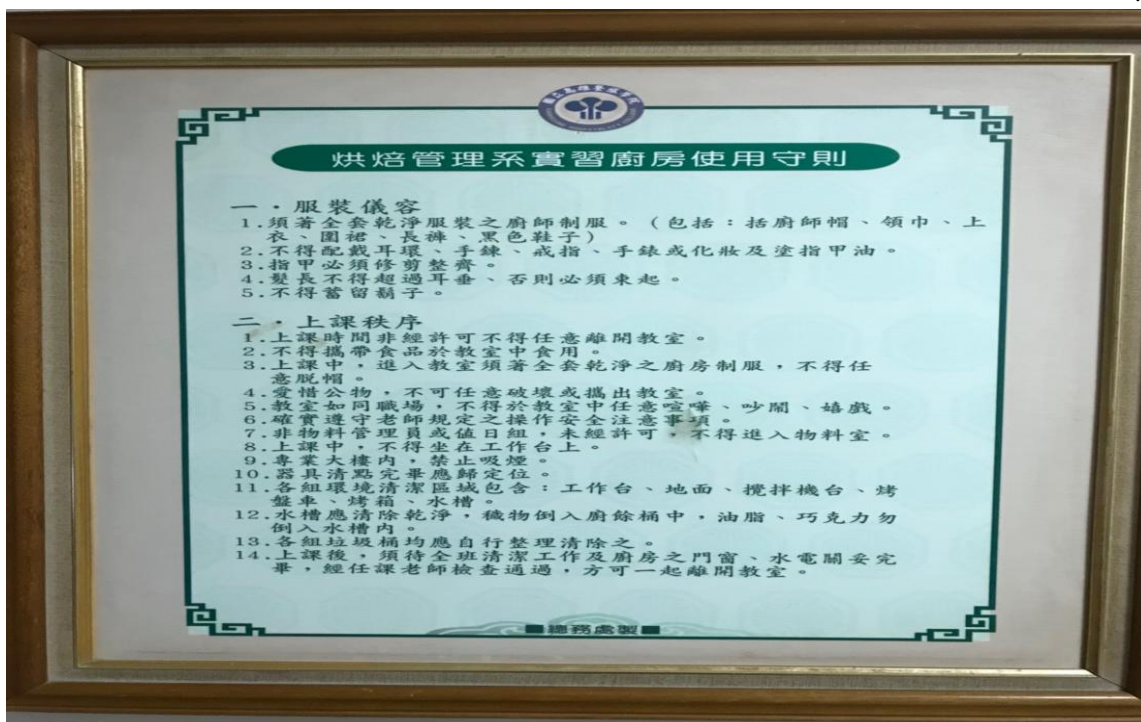 烘焙管理系實習廚房使用守則
一．服裝儀容
1.須著全套乾淨服裝之廚師制服。（包括：括廚師帽、領巾、上
衣、圍裙、長褲、黑色鞋子）
2.不得配戴耳環、手鍊、戒指、手錶或化妝及塗指甲油。
3.指甲必須修剪整齊。
4.髮長不得超過耳垂、否則必須束起。
5.不得蓄留鬍子。
二．上課秩序
1.上課時間非經許可不得任意離開教室。
2.不得攜帶食品於教室中食用。
3.上課中，進入教室須著全套乾淨之廚房制服，不得任
意脫帽。
4.愛惜公物，不可任意破壞或攜出教室。
5.教室如同職場，不得於教室中任意喧嘩、吵鬧、嬉戲。
6.確實遵守老師規定之操作安全注意事項。
7.非物料管理員或值日組，未經許可，不得進入物料室。
8.上課中，不得坐在工作台上。
9.專業大樓內，禁止吸煙。
10.器具清點完畢應歸定位。
11.各組環境清潔區域包含：工作台、地面、攪拌機台、烤
盤車、烤箱、水槽。
12.水槽應清除乾淨，穢物倒入廚餘桶中，油脂、巧克力勿
倒入水槽內。
13.各組垃圾桶均應自行整理清除之。
14.上課後，須待全班清潔工作及廚房之門窗、水電關妥完
畢，經任課老師檢查通過，方可一起離開教室。
■總務處製■